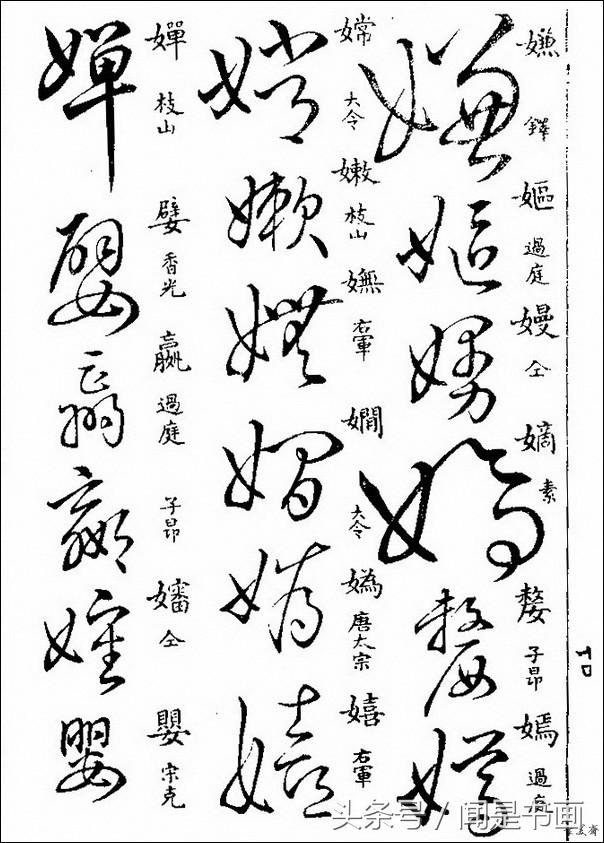 嫌 鐸
嫗 過庭
嫚 仝
嫡 素
嫠 子昂
嫣 過庭
嫦 大令
嫩 枝山
嫵 右軍
嫺 大令
嬀 唐太宗
嬉 右軍
嬋 枝山
嬖 香光
嬴 過庭
子昂
嬸 仝
嬰 宋克
头条号 / 闻是书画